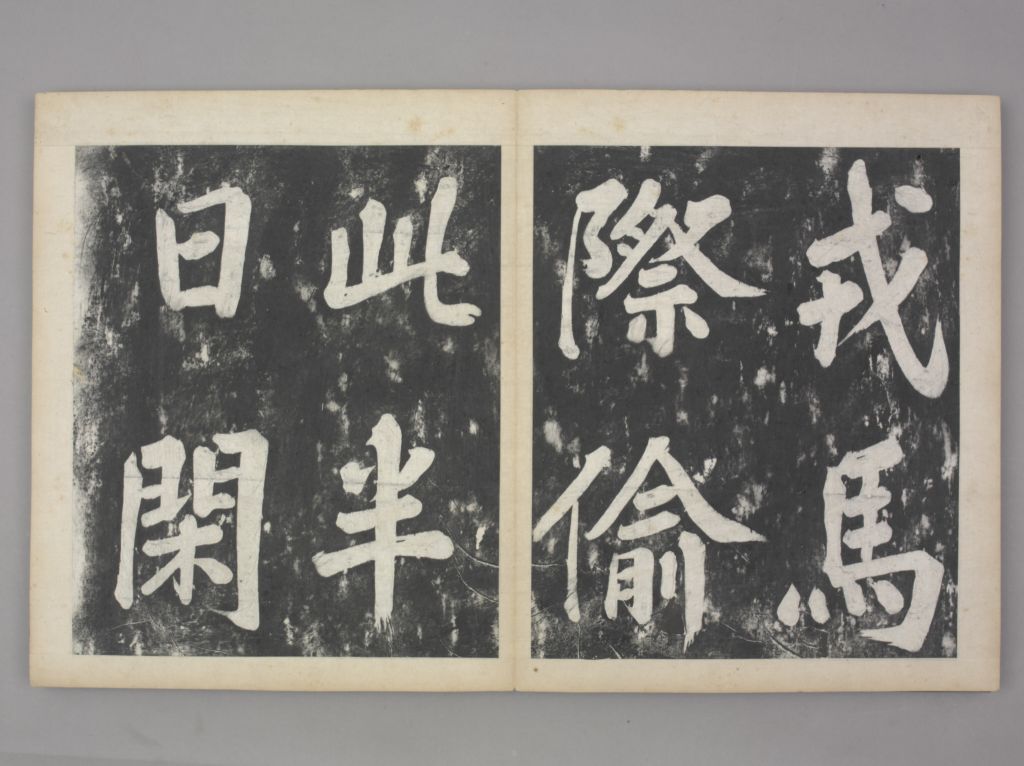 戎馬
際偷
此半
日閑